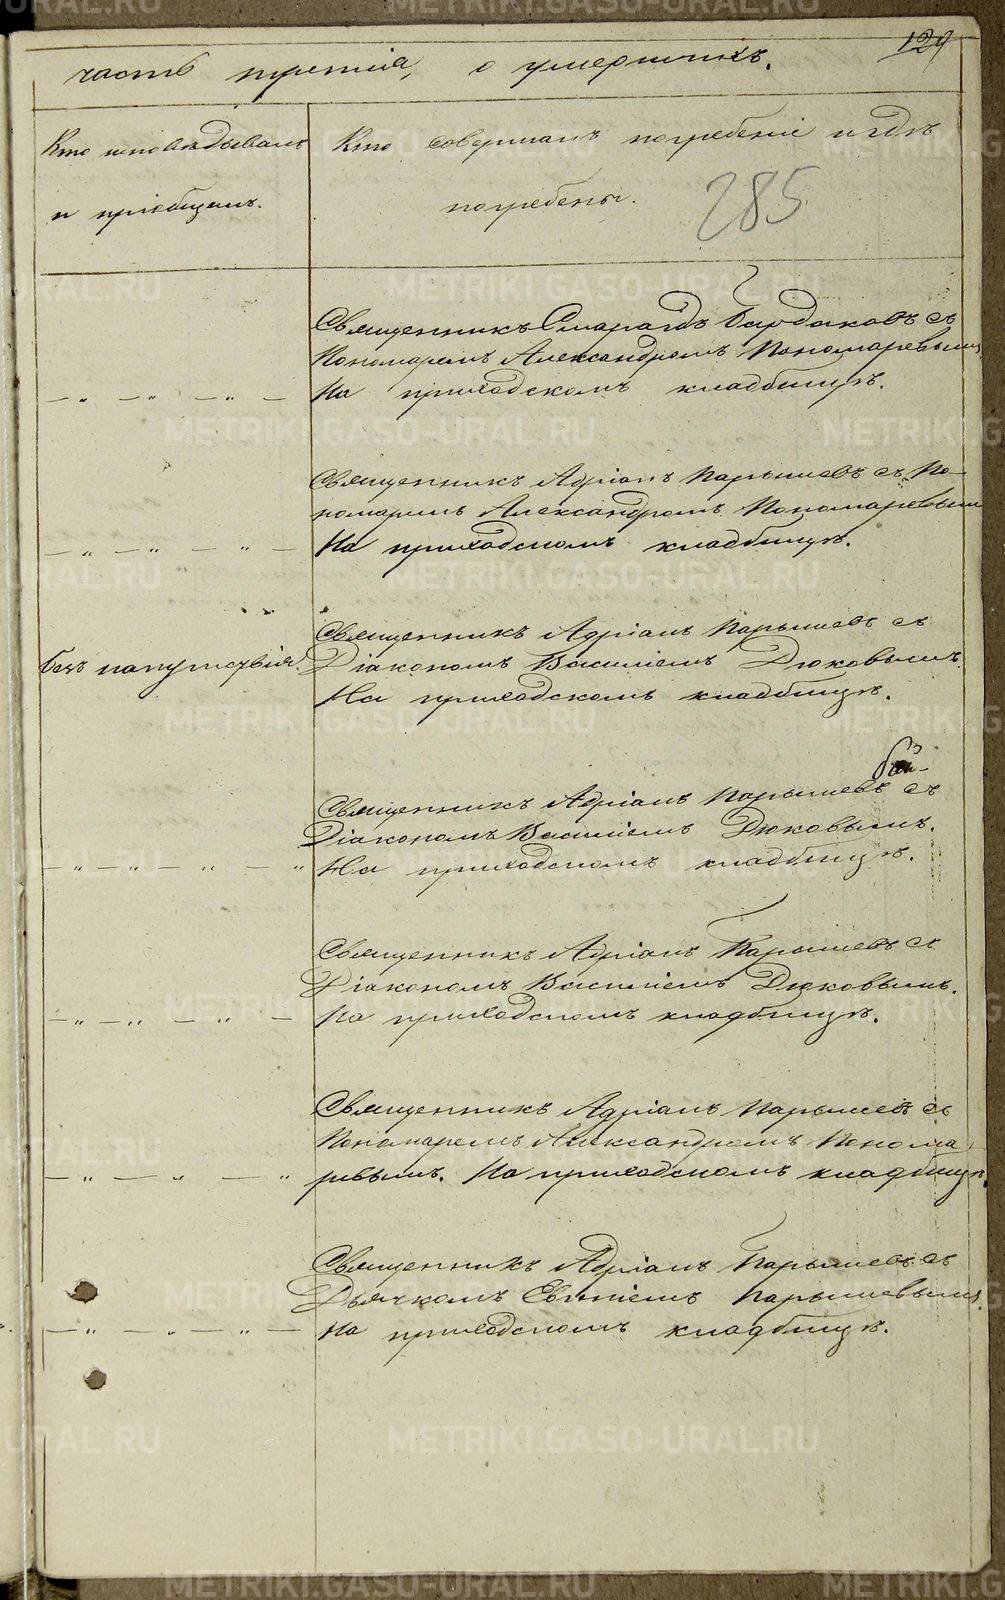 129
часть третія, о умершихъ.
Кто исповѣдывалъ
и пріобщалъ.
Кто совершалъ погребеніе и гдѣ
погребены.
285
Священникъ Смарагдъ Бирдюковъ съ
Пономаремъ Александромъ Пономаревымъ
На приходскомъ кладбищѣ.
— „ — „ — „ —
Священникъ Адріанъ Парышевъ съ По-
номаремъ Александромъ Пономаревымъ
На приходскомъ кладбищѣ.
— „ — „ — „ —
Священникъ Адріанъ Парышевъ съ
безъ напутствія.
Діакономъ Василіемъ Дюковымъ.
На приходскомъ кладбищѣ.
Священникъ Адріанъ Парышевъ съ
Діакономъ Василіемъ Дюковымъ.
На приходскомъ кладбищѣ.
— „ — „ — „ „
Священникъ Адріанъ Парышевъ съ
Діакономъ Василіемъ Дюковымъ.
На приходскомъ кладбищѣ.
— „ — „ — „ —
Священникъ Адріанъ Парышевъ съ
Пономаремъ Александромъ Понома
ревымъ. На приходскомъ кладбищѣ.
— „ — „ — „
Священникъ Адріанъ Парышевъ съ
Дьячкомъ Евгеніемъ Парышевымъ.
На приходскомъ кладбищѣ.
— „ — „ — „ —
METRIKI.GASO-URAL.RU